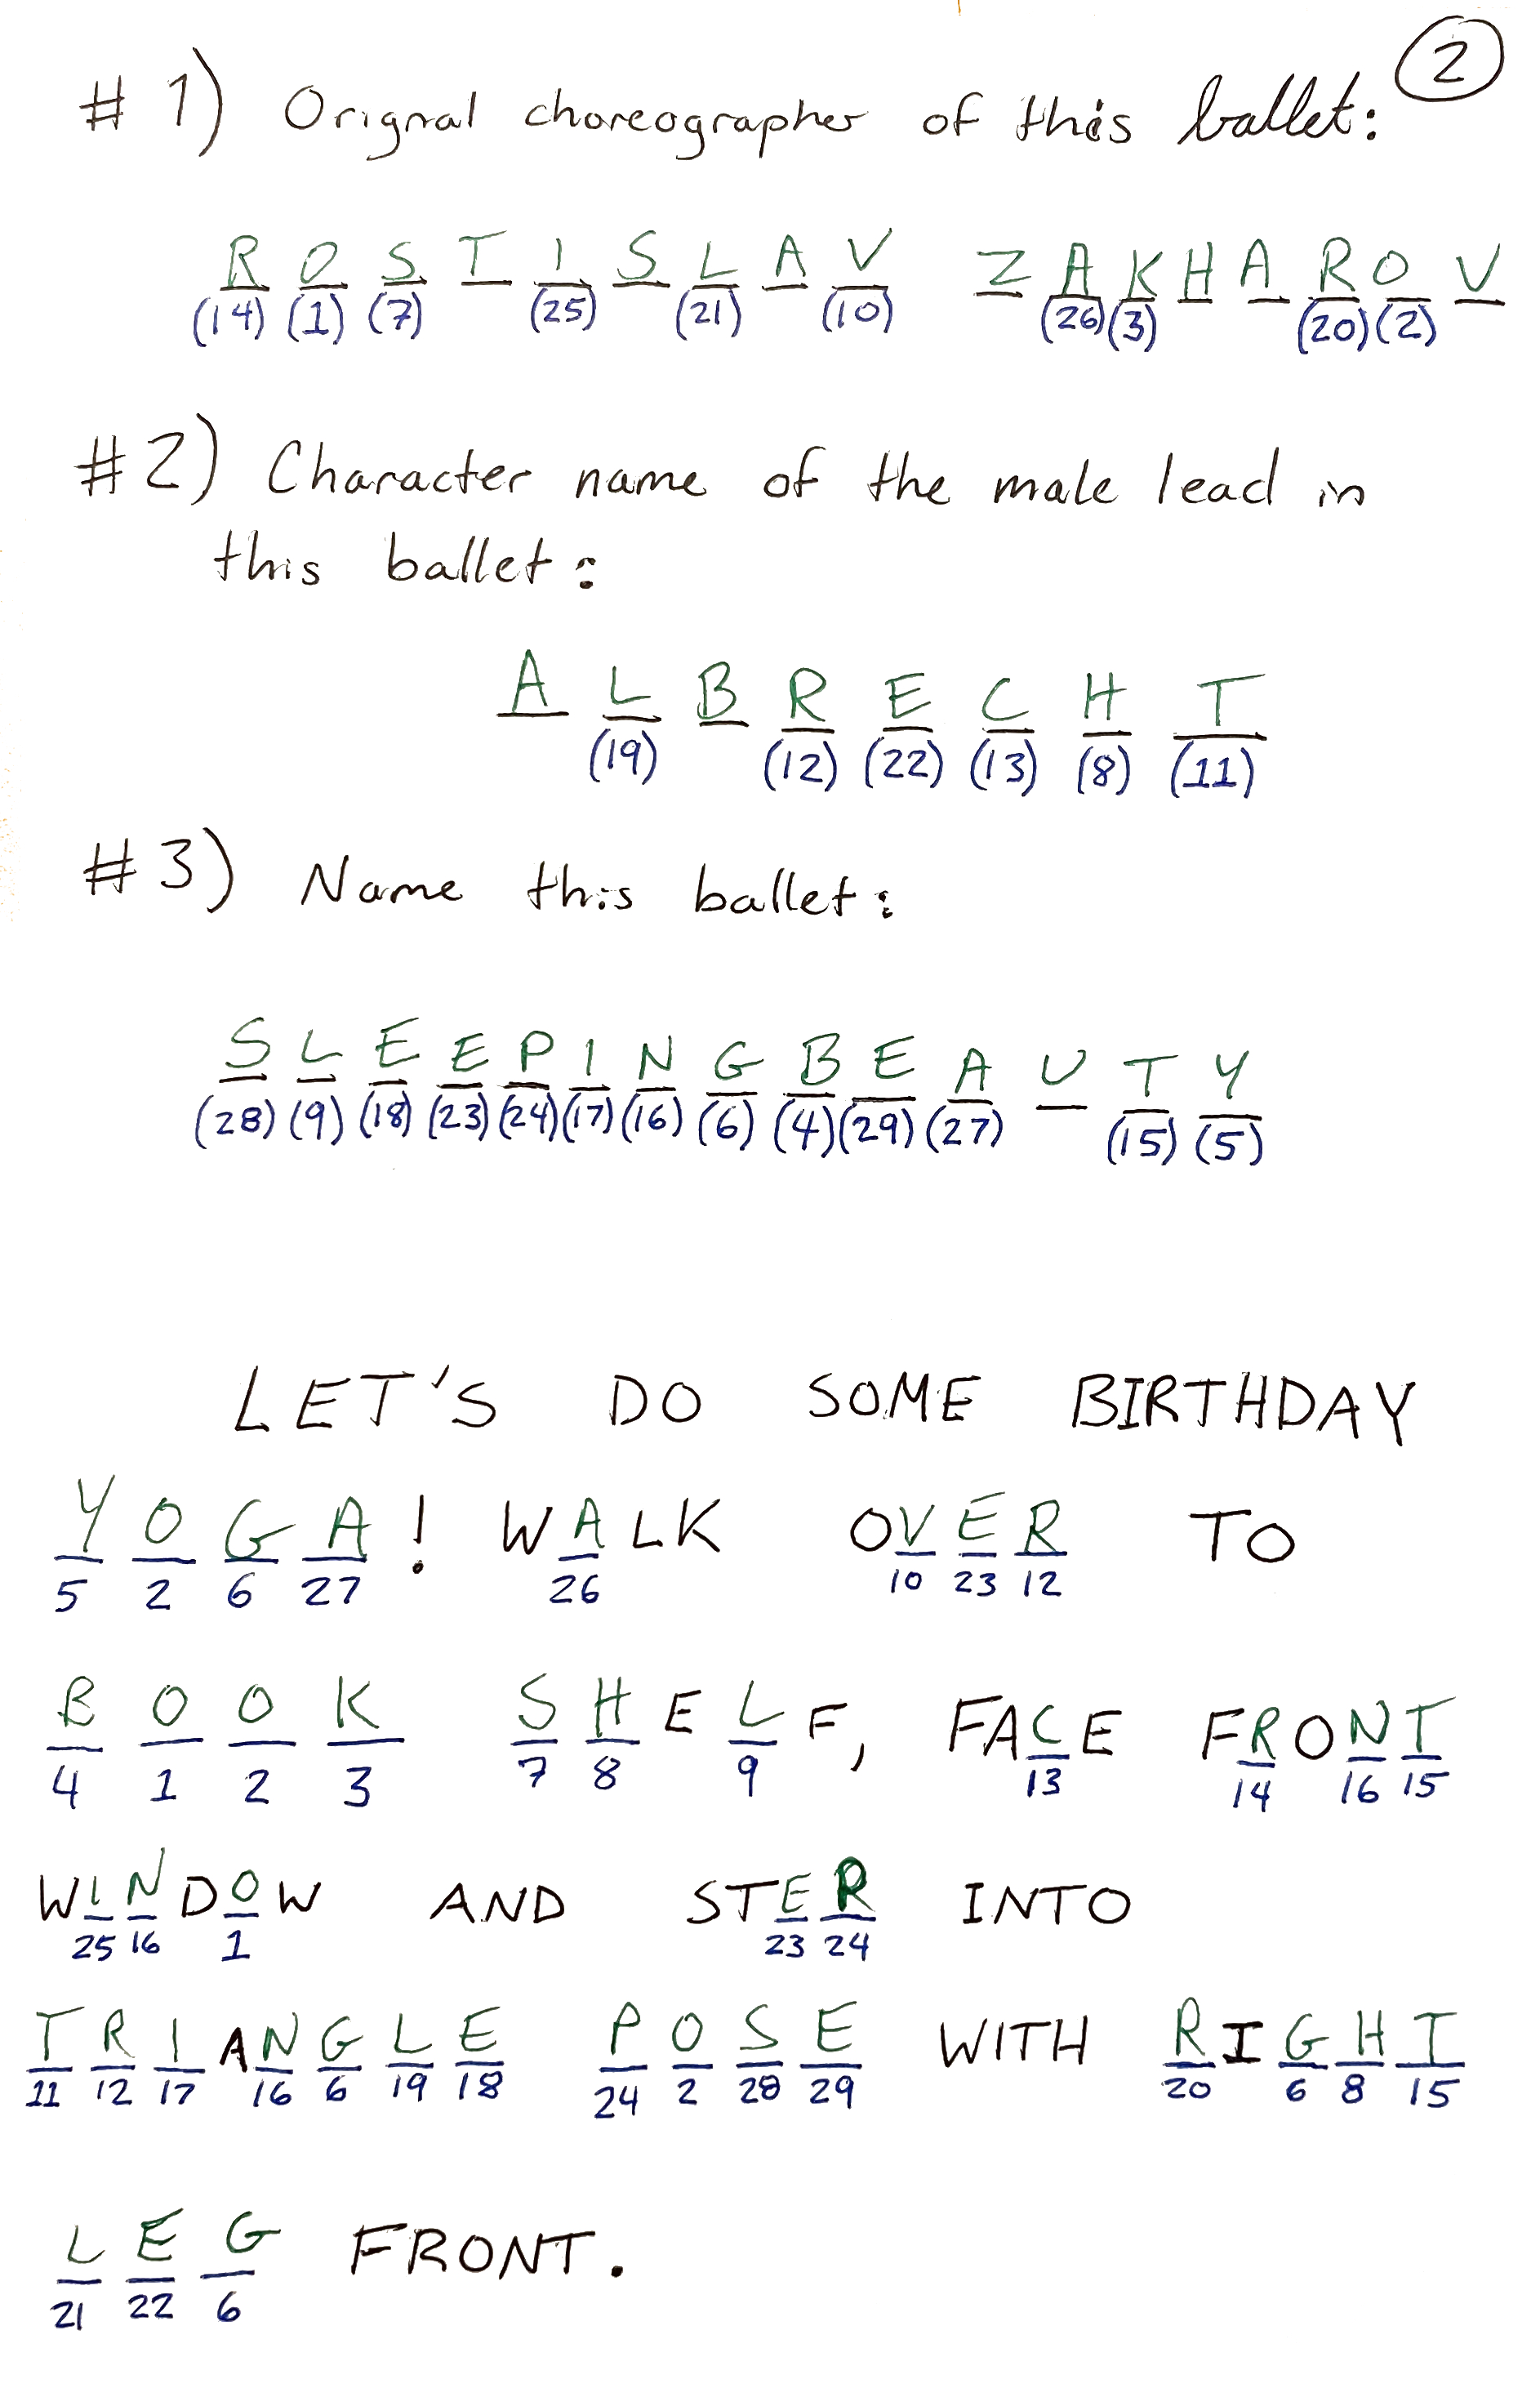 2
# 1) Orignal choreographer of this ballet:
R O S T I S L A V Z A K H A R O V
(14) (1) (7) (25) (21) (10) (26) (3) (20) (2)
#2) Character name of the male lead in
this ballet:
A L B R E C H T
(19) (12) (22) (13) (8) (11)
#3) Name this ballet:
S L E E P I N G B E A U T Y
(28) (9) (18) (23) (24) (17) (16) (6) (4) (29) (27) (15) (5)
LET'S DO SOME BIRTHDAY
Y O G A ! WALK OVER TO
5 2 6 27 26 10 23 12
B O O K S H E L F, FACE FRONT
4 1 2 3 7 8 9 13 14 16 15
WINDOW AND STER INTO
25 16 1 23 24
T R I A N G L E P O S E WITH RIGHT
11 12 17 16 6 19 18 24 2 28 29 20 6 8 15
L E G FRONT.
21 22 6